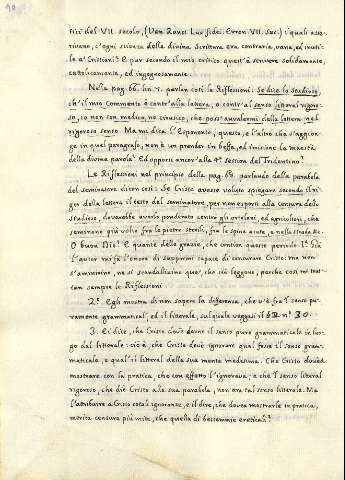 tici del VII. secolo, (Ven. Ranst Lux fidei. Erron. VII. Sæc.) i quali asse-
rivano, c'ogni scienza della divina Scrittura era contraria, vana, ed inuti-
le a' Cristiani? E pur secondo il mio critico quest'è scrivere solidamente,
cattolicamente, ed ingegnosamente.
Nella pag. 66. lin. 7. parlan così le Riflessioni: Se dito lo Studioso,
ch'il mio Commento è contr'alla lettera, o contr'al senso litteral rigoro-
so, io non son medico, ne cinusico, che poss'avvalermi della lettera nel
rigoroso senso. Ma mi dica l'Esponente, questo, e l'altro che s'aggion-
ge in quel paragrafo, non è un prender in beffa, ed irrisione la maestà
della divina parola? Ed opporsi ancor'alla 4ª session del Tridentino?
Le Riflessioni nel principio della pag. 68. parlando della parabola
del seminatore dicon così: Se Cristo avesse voluto spiegare secondo il ri-
gor della lettera il testo del seminatore, per non esporsi alla censura dello
studioso, dovarebbe averlo ponderato contro gli ortolani, ed agricoltori, che
seminano più volte fra le pietre sterili, fra le spine acute, e nella strada &c.
O buon Dio! E quante delle grosse, che contien questo periodo! 1º Già
l'autor mi fa l'onore di supporrmi capace di censurare Cristo: ma non
s'ammirino, ne si scandalizzino que', che ciò leggono, perche così mi trat-
tan sempre le Riflessioni
2º Egli mostra di non sapere la differenza, che v'è fra'l senso pu-
ramente grammatical, ed il litterale, sul quale veggasi il §2. nº 30.
3. Ei dice, che Cristo dovè darne il senso puro grammaticale in luo-
go del litterale: cioè, che Cristo dovè ignorare qual fosse il senso gram-
maticale, e qual'il litteral della sua mente medesima. Che Cristo dovea
mostrare con la pratica, che con effetto l'ignorava; e che'l senso litteral
rigoroso, che diè Cristo alla sua parabola, non era tal senso litterale. Ma
l'attribuire a Cristo cotali ignoranze, e il dire, che dovea mostrarle in pratica,
merita censura più mite, che quella di bestemmie ereticali?